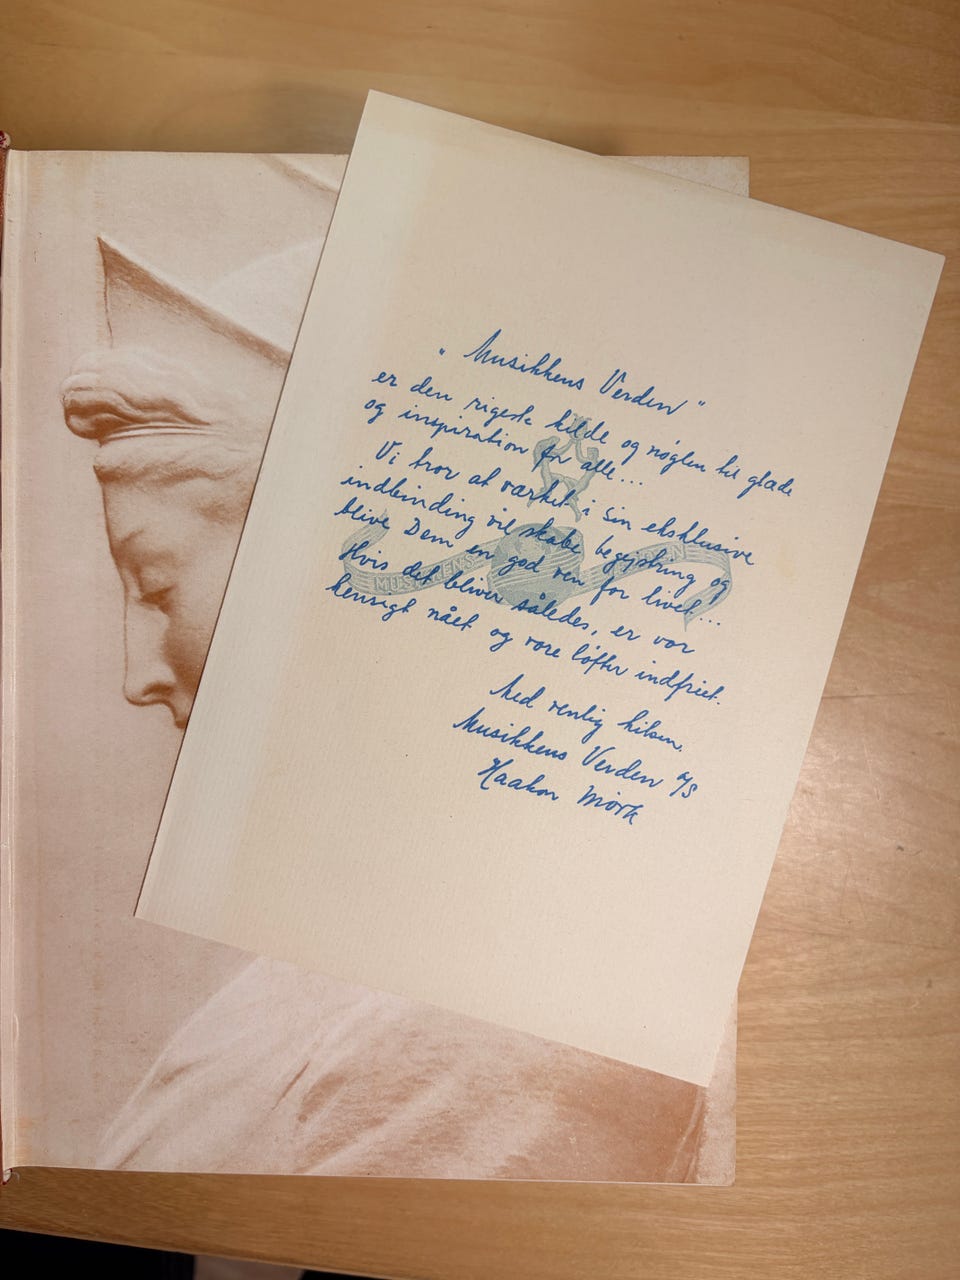 "Musikkens Verden"
er den rigeste kilde og nøglen til glæde
og inspiration for alle...
Vi tror at værket i sin eksklusive
indbinding vil skabe begejstring og
blive Dem en god ven for livet...
Hvis det bliver således, er vor
hensigt nået og vore løfter indfriet.
Med venlig hilsen.
Musikkens Verden A/S
Haakon Mørk
MUSIKKENS VERDEN